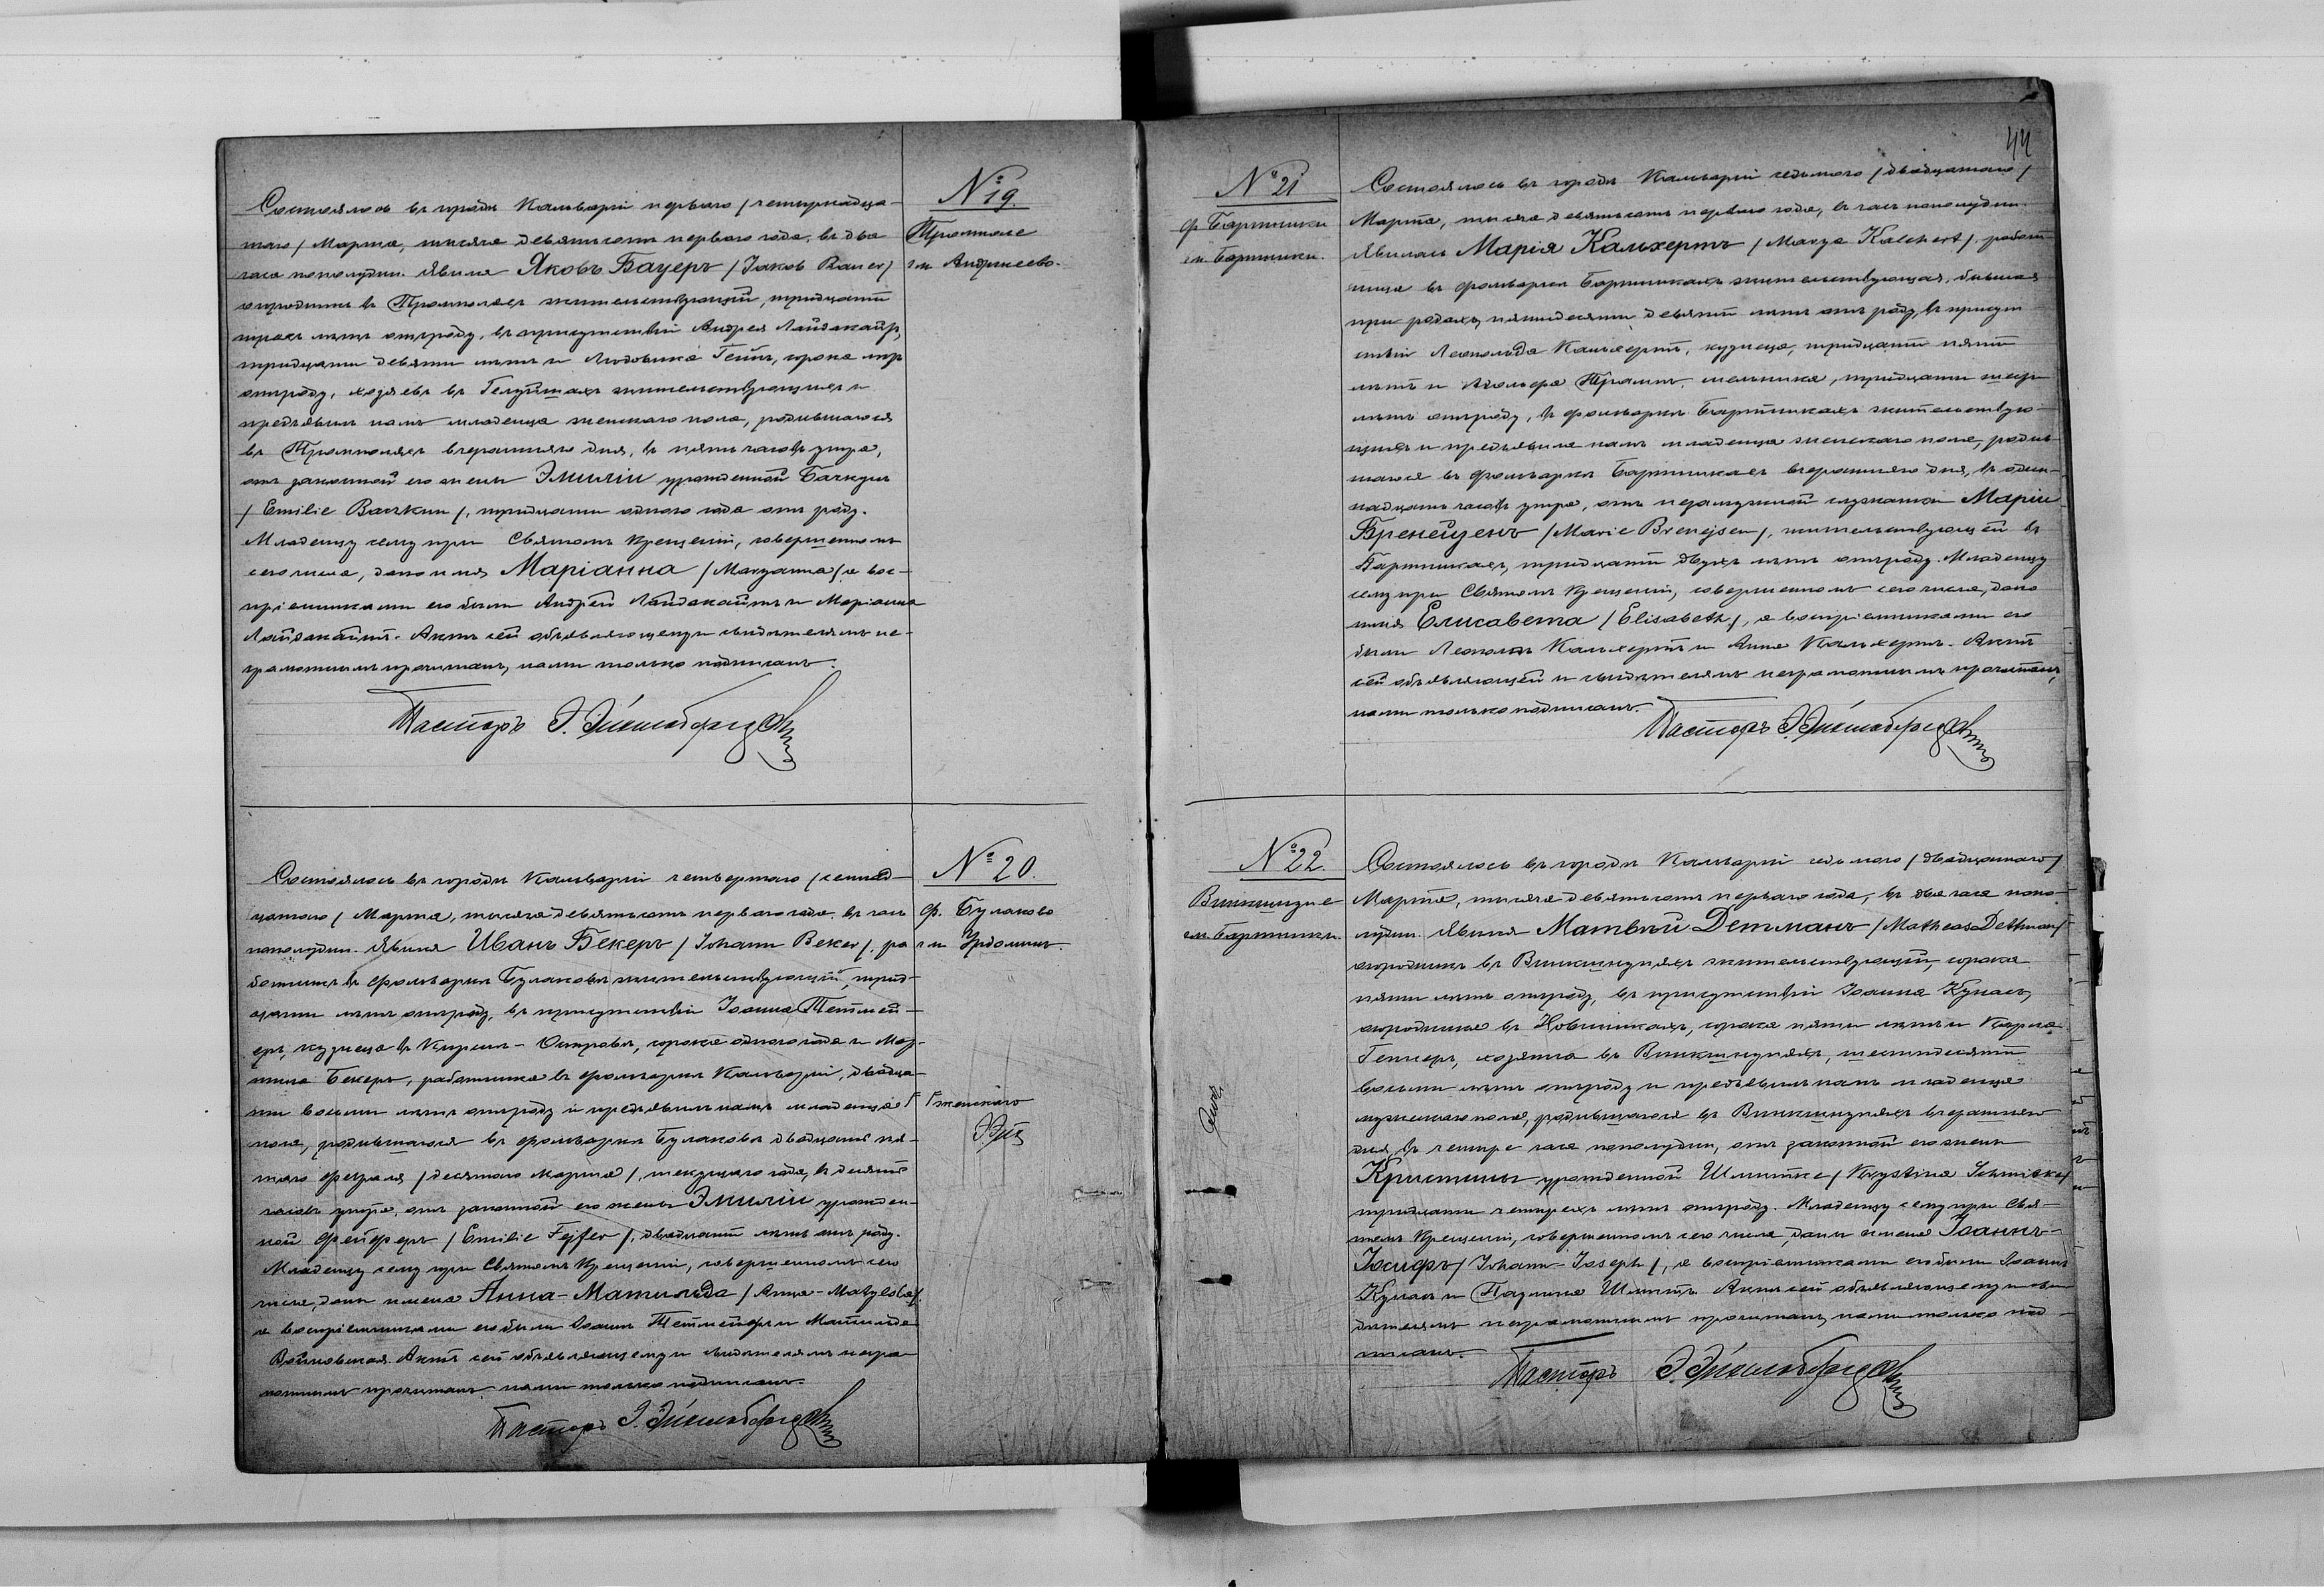 № 19.
Тромполе
гм. Андржеево.
Состоялось въ городѣ Кальваріи перваго /четырнадца-
таго/ Марта, тысяча девятьсотъ перваго года, въ два
часа пополудни. Явился Яковъ Бауеръ /Jakob Bauer/
огородникъ въ Тромполяхъ жительствующій, тридцати
трехъ лѣтъ отъ роду, въ присутствіи Андрея
тридцати девяти лѣтъ и Людовика Гейнъ, сорока лѣтъ
отъ роду, хозяевъ въ жительствующихъ и
предъявилъ намъ младенца женскаго пола, родившагося
въ Тромполяхъ вчерашняго дня, въ пять часовъ утра,
отъ законной его жены Эмиліи урожденной Бачкунъ
/Emilie Baczkun/, тридцати одного года отъ роду.
Младенцу сему при Святомъ Крещеніи, совершенномъ
сего числа, дано имя Маріанна /Maryanna/, а вос-
пріемниками его были Андрей и Маріанна
Актъ сей объявляющему и свидѣтелямъ не-
грамотнымъ прочитанъ, нами только подписанъ.
Пасторъ Э.
№ 20.
ф. Булаково
гм. Урдоминъ.
Состоялось въ городѣ Кальваріи четвертаго /семнад-
цатаго/ Марта, тысяча девятьсотъ перваго года, въ часъ
пополудни. Явился Иванъ Бекеръ /Johann Beker/, ра-
ботникъ въ фольваркѣ Булаковѣ жительствующій, трид-
цати лѣтъ отъ роду, въ присутствіи Іоанна Тетмей-
еръ, кузнеца въ сорока одного года и Мар-
тина Бекеръ, работника въ фольваркѣ Кальваріи, двадца-
ти восьми лѣтъ отъ роду и предъявилъ намъ младенца Г
Г женскаго
пола, родившагося въ фольваркѣ Булаковѣ двадцать пя-
таго февраля /десятаго Марта/, текущаго года, въ девять
часовъ утра, отъ законной его жены Эмиліи урожден-
ной Фейферъ /Emilie Fejfer/, двадцати лѣтъ отъ роду.
Младенцу сему при Святомъ Крещеніи, совершенномъ сего
числа, даны имена Анна-Матильда /Anna-Matylda/,
а воспріемниками его были Іоаннъ Тетмейеръ и Матильда
Актъ сей объявляющему и свидѣтелямъ негра-
мотнымъ прочитанъ, нами только подписанъ.
Пасторъ Э.
44
№ 21
ф. Бартники
гм. Бартники.
Состоялось въ городѣ Кальваріи седьмого /двадцатаго/
Марта, тысяча девятьсотъ перваго года, въ часъ пополудни.
Явилась Марія Кальхертъ /Marya Kalchert/, работ-
ница въ фольваркѣ Бартникахъ жительствующая, бывшая
при родахъ, пятидесяти девяти лѣтъ отъ роду, въ присут-
ствіи Леопольда Кальхертъ, кузнеца, тридцати пяти
лѣтъ и Адольфа мельника, тридцати
лѣтъ отъ роду, въ фольваркѣ Бартникахъ жительствую-
щихъ и предъявила намъ младенца женскаго пола, родив-
шагося въ фольваркѣ Бартникахъ вчерашняго дня, въ один-
надцать часовъ утра, отъ незамужней служанки Маріи
Бренейзенъ /Marie Brenejsen/, жительствующей въ
Бартникахъ, тридцати двухъ лѣтъ отъ роду. Младенцу
сему при Святомъ Крещеніи, совершенномъ сего числа, дано
имя Елисавета /Elisabeth/, а воспріемниками его
были Леопольдъ Кальхертъ и Анна Кальхертъ. Актъ
сей объявляющей и свидѣтелямъ неграмотнымъ прочитанъ,
нами только подписанъ.
Пасторъ Э.
№ 22.
Викшнупе
гм. Бартники.
Состоялось въ городѣ Кальваріи седьмого /двадцатаго/
Марта, тысяча девятьсотъ перваго года, въ два часа попо-
лудни. Явился Матвѣй Детманъ /Matheas Dethman/
огородникъ въ жительствующій, сорока
пяти лѣтъ отъ роду, въ присутствіи Іоанна
огородника въ Новиникахъ, сорока пяти лѣтъ и Карла
хозяина въ шестидесяти
восьми лѣтъ отъ роду и предъявилъ намъ младенца
мужескаго пола, родившагося въ вчерашняго
дня, въ четыре часа пополудни, отъ законной его жены
Кристины урожденной Шмитке /Krystine Schmitke/
тридцати четырехъ лѣтъ отъ роду. Младенцу сему при Свя-
томъ Крещеніи, совершенномъ сего числа, даны имена Іоаннъ-
Іосифъ /Johann-Joseph/, а воспріемниками его были Іоаннъ
и Паулина Шмитъ. Актъ сей объявляющему и сви-
дѣтелямъ неграмотнымъ прочитанъ, нами только под-
писанъ.
Пасторъ Э.